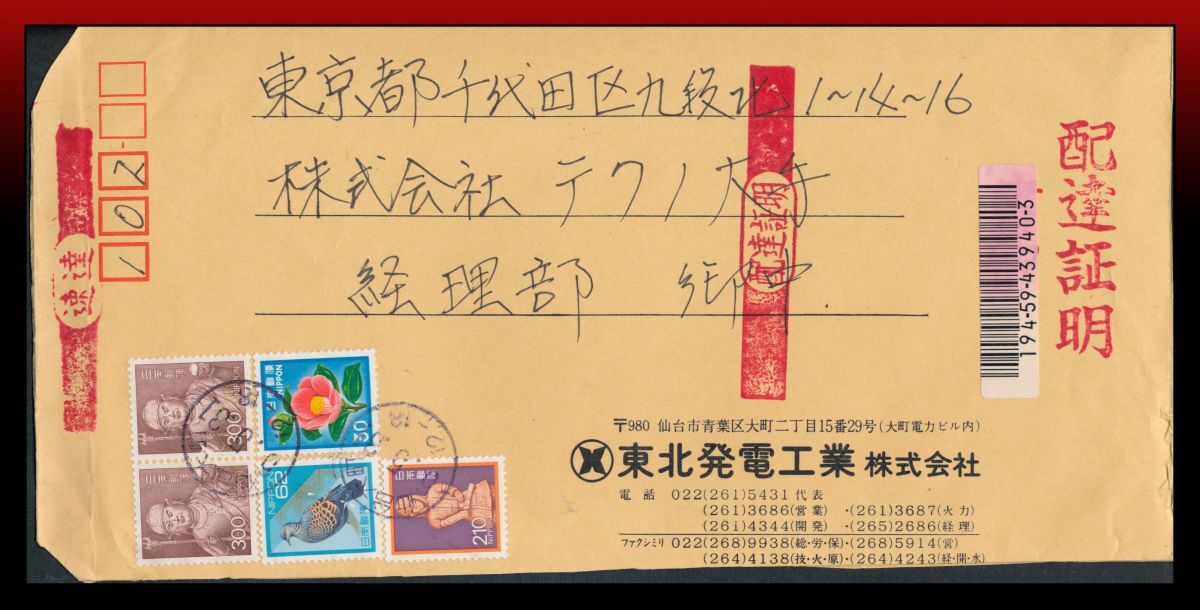 東京都千代田区九段北 1~14~16
株式会社 テクノ大手
経理部 御中.
102
速達
配達証明
配達証明
194-59-43940-3
日本郵便
NIPPON
300
日本郵便
NIPPON
300
日本郵便
NIPPON
30
日本郵便
NIPPON
62
日本郵便
NIPPON
210
〒980 仙台市青葉区大町二丁目15番29号(大町電力ビル内)
東北発電工業 株式会社
電話 022(261)5431 代表
(261)3686(営業)・(261)3687(火力)
(261)4344(開発)・(265)2686(経理)
ファクシミリ 022(268)9938(総・労・保)・(268)5914(営)
(264)4138(技・火・原)・(264)4243(経・開・水)